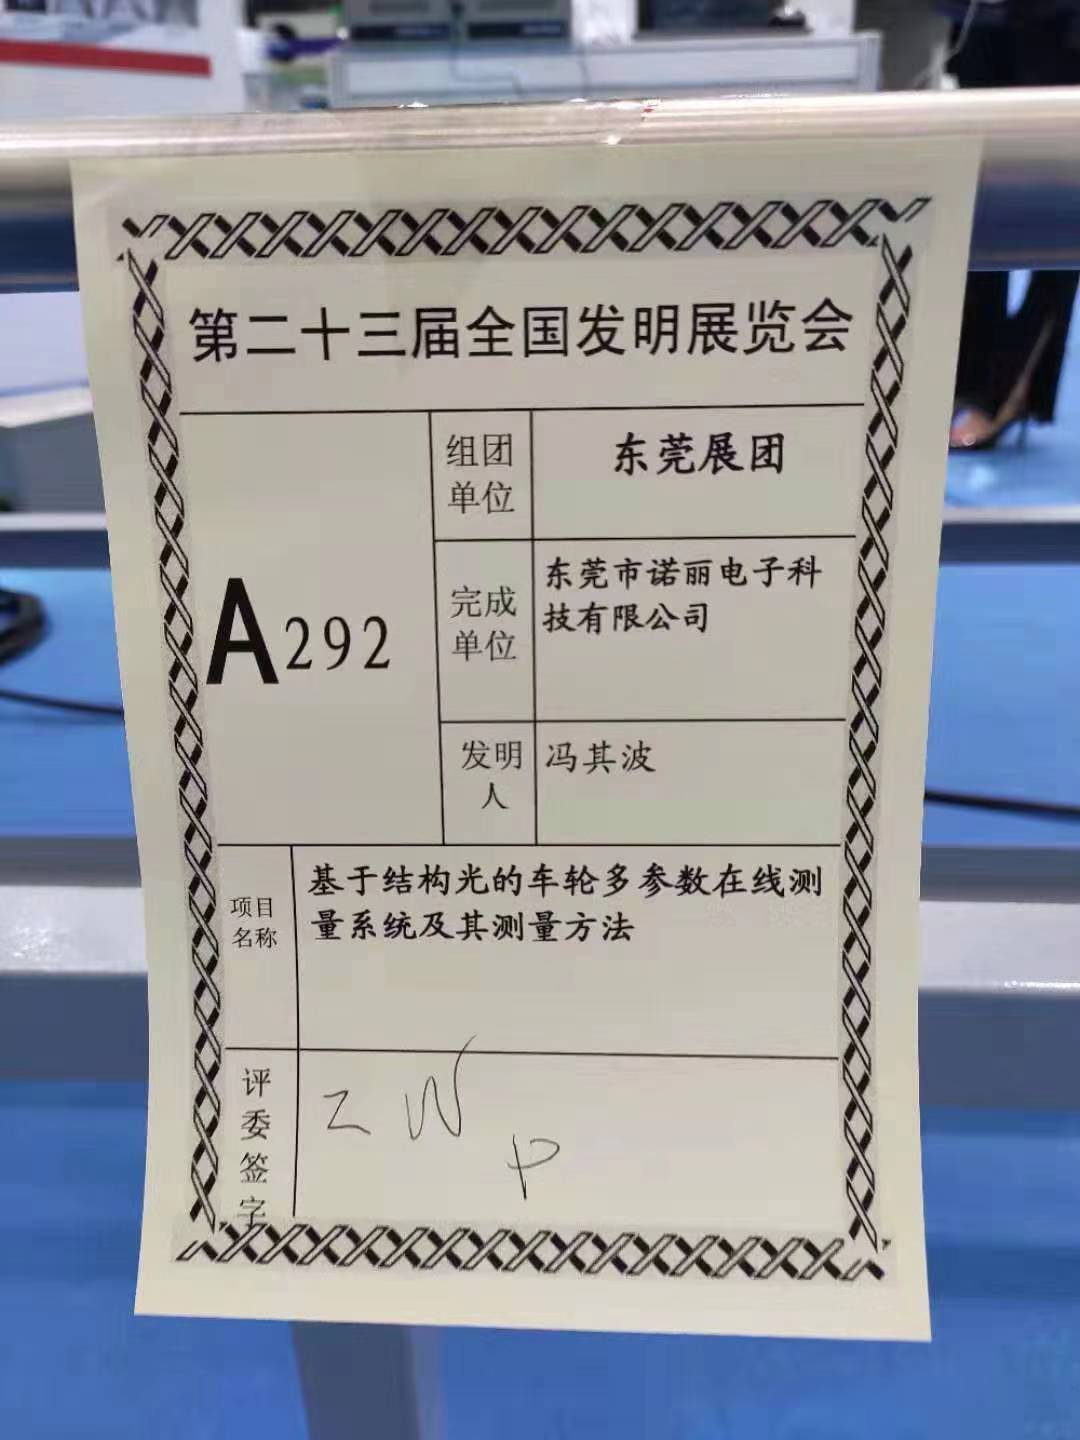 第二十三届全国发明展览会
A292
组团
单位
东莞展团
完成
单位
东莞市诺丽电子科
技有限公司
发明
人
冯其波
项目
名称
基于结构光的车轮多参数在线测
量系统及其测量方法
评
委
签
字
Z W
P